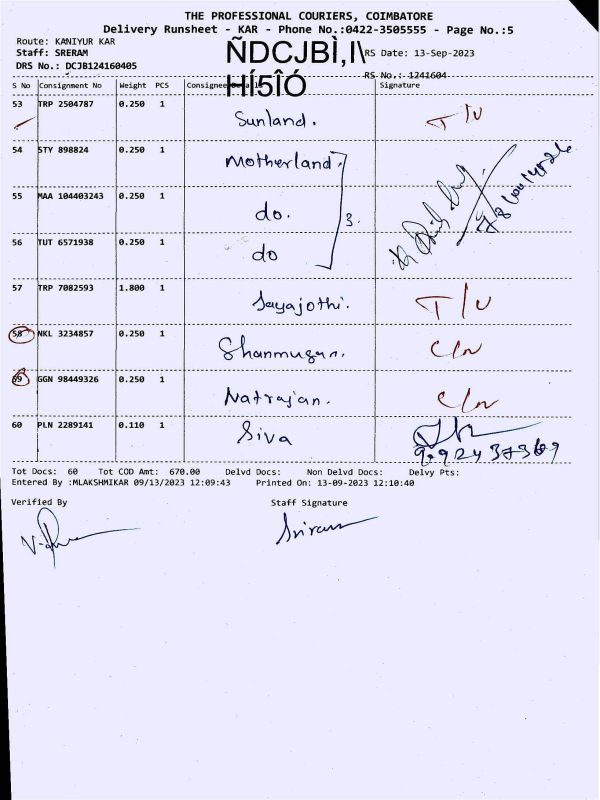 THE PROFESSIONAL COURIERS, COIMBATORE
Delivery Runsheet - KAR - Phone No.:0422-3505555 - Page No.:5
Route: KANIYUR KAR
Staff: SRERAM
ÑDCJBÌ,I\
RS Date: 13-Sep-2023
DRS No.: DCJB124160405
HÍ5ÎÓ
RS No.: 1241604
S No Consignment No Weight PCS Consignee Details Signature
53 TRP 2504787 0.250 1 Sunland. T/U
54 STY 898824 0.250 1 Motherland.
55 MAA 104403243 0.250 1 do. 3.
56 TUT 6571938 0.250 1 do
57 TRP 7082593 1.800 1 Jayajothi. T/U
58 NKL 3234857 0.250 1 Shanmugan. C/N
59 GGN 98449326 0.250 1 Natrajan. C/N
60 PLN 2289141 0.110 1 Siva
Tot Docs: 60 Tot COD Amt: 670.00 Delvd Docs: Non Delvd Docs: Delvy Pts:
Entered By :MLAKSHMIKAR 09/13/2023 12:09:43 Printed On: 13-09-2023 12:10:40
Verified By Staff Signature
Sriram